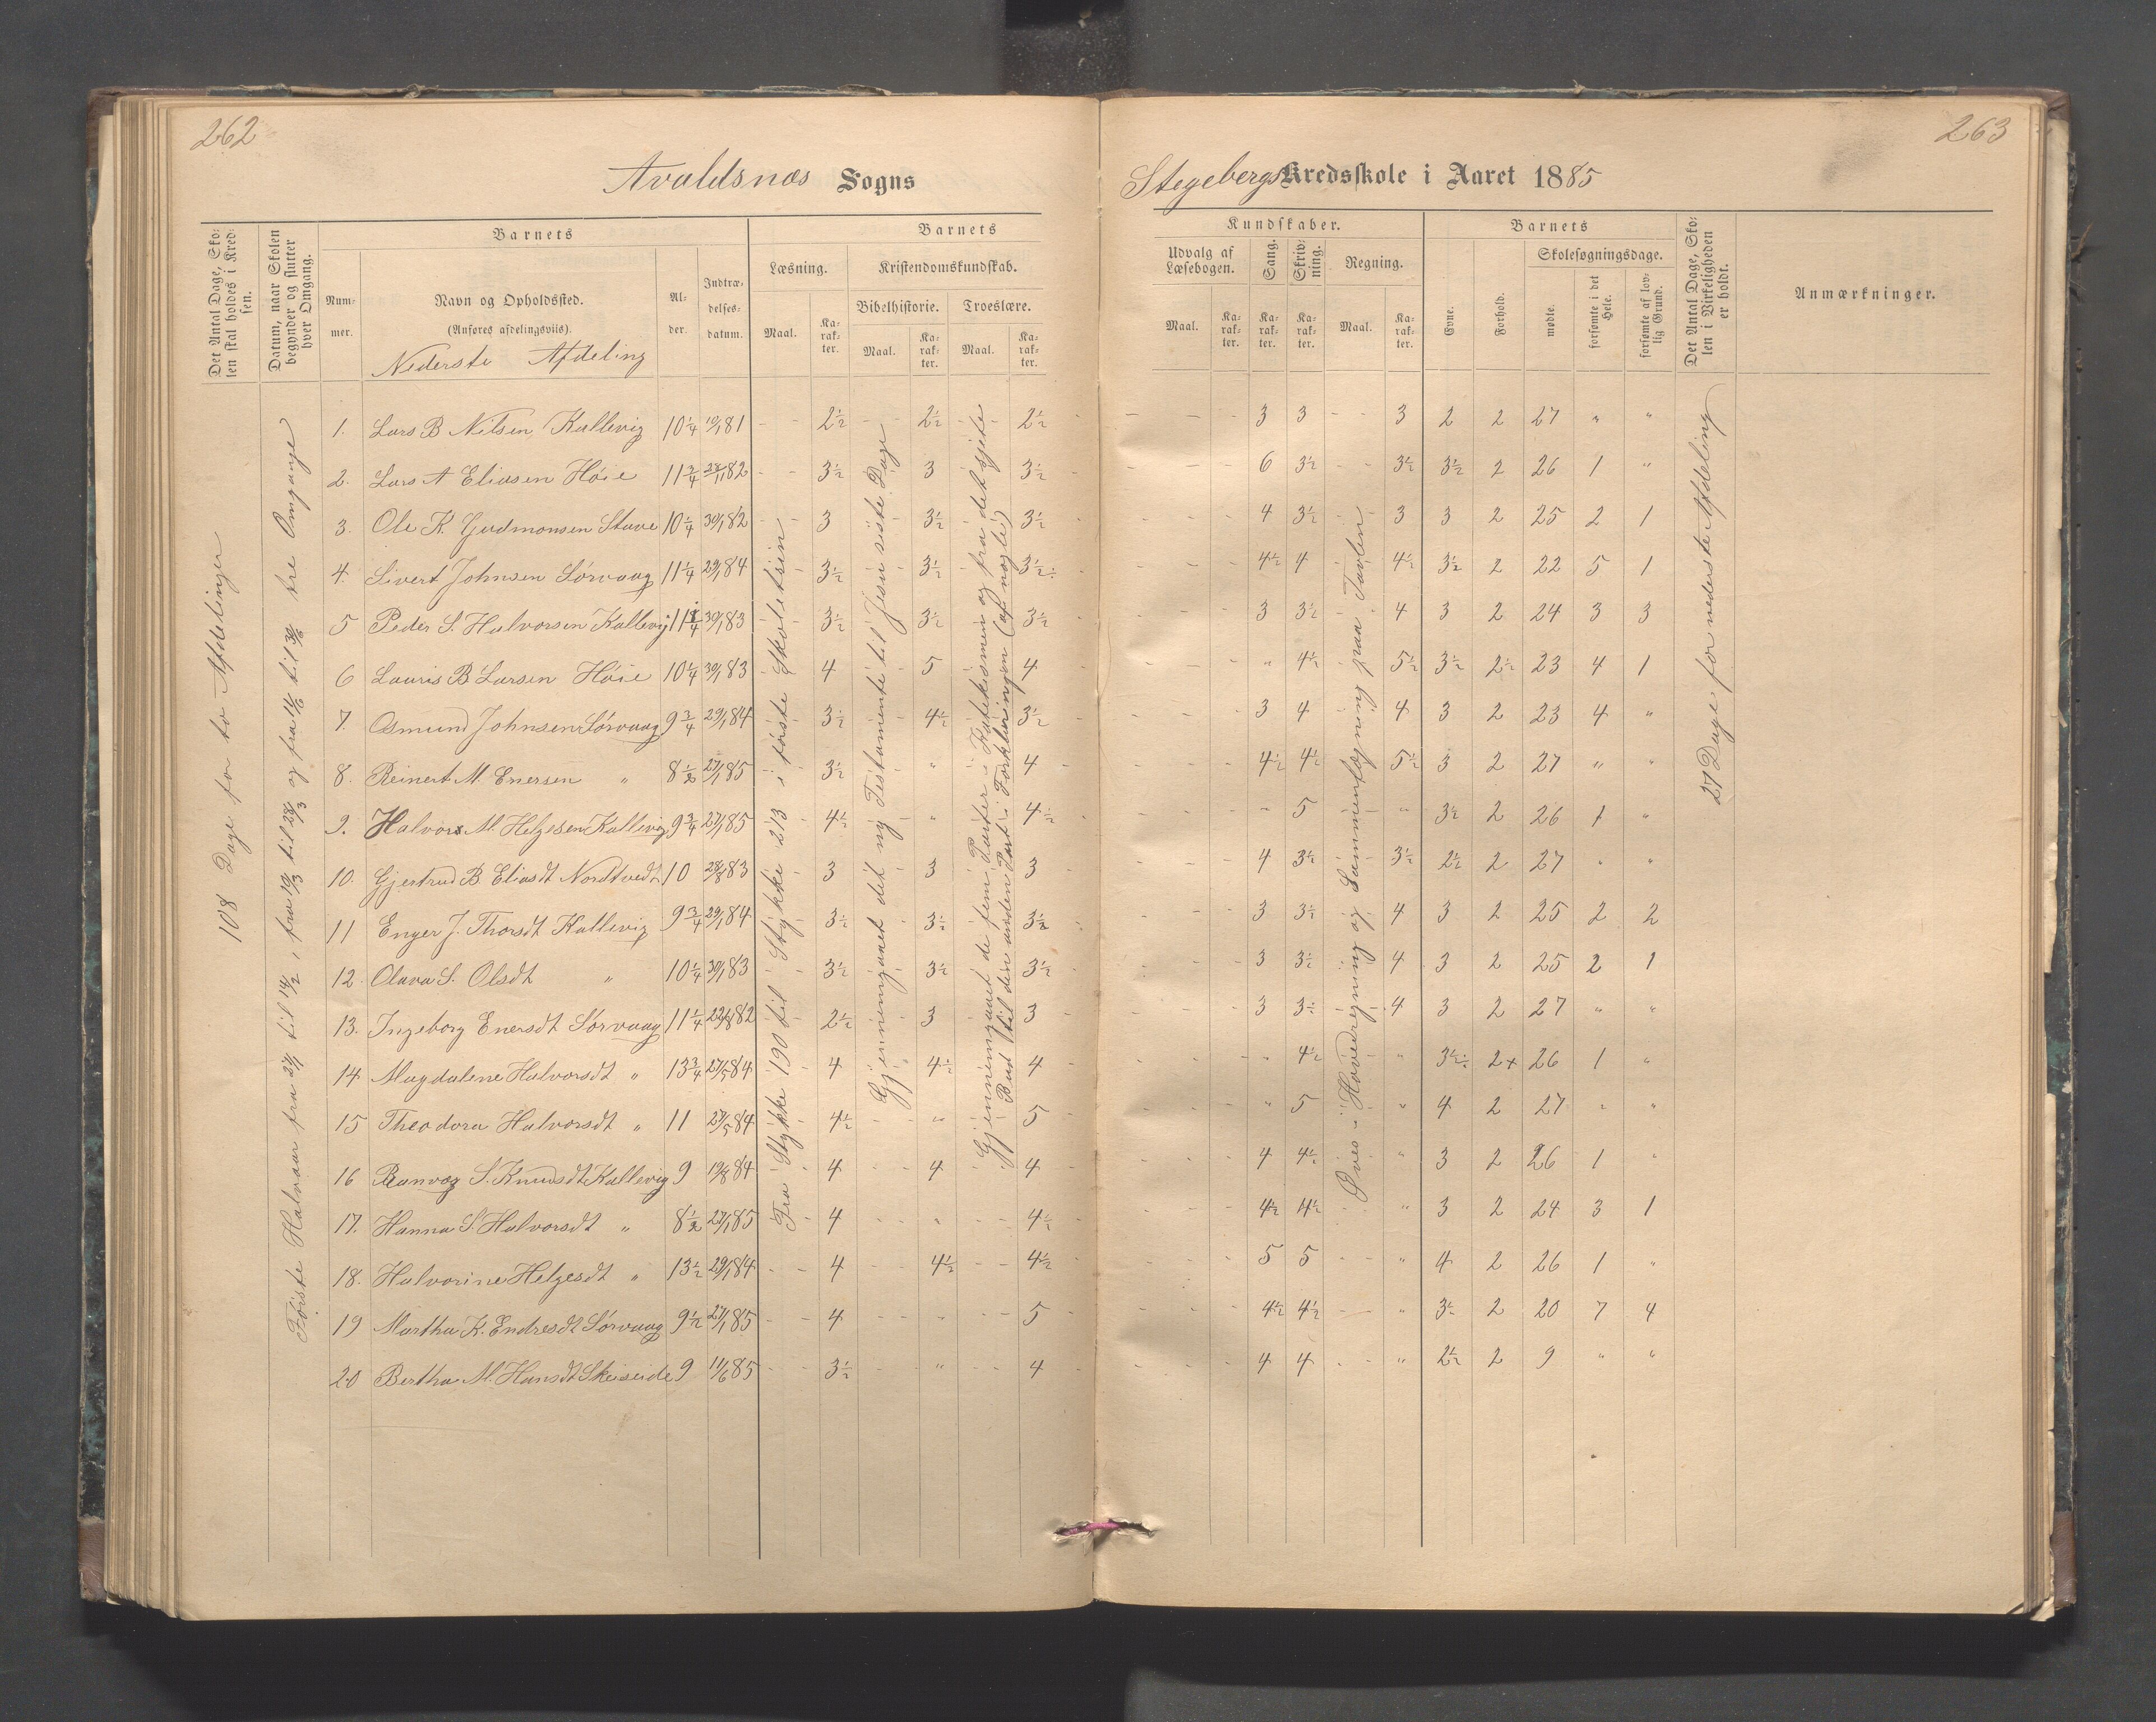 262
263
Avaldsnæs Sogns
Stegebergs Kredsskole i Aaret 1885
Det Antal Dage, Sko-
len skal holdes i Kred-
sen.
Datum, naar Skolen
begynder og slutter
hver Omgang.
Barnets
Num-
mer.
Navn og Opholdssted.
(Anføres afdelingsviis).
Nederste Afdeling
Al-
der.
Indtræ-
delses-
datum.
Barnets
Læsning.
Maal.
Ka-
rak-
ter.
Kristendomskundskab.
Bibelhistorie.
Maal.
Ka-
rak-
ter.
Troeslære.
Maal.
Ka-
rak-
ter.
Kundskaber.
Udvalg af
Læsebogen.
Maal.
Ka-
rak-
ter.
Sang.
Ka-
rak-
ter.
Skriv-
ning.
Ka-
rak-
ter.
Regning.
Maal.
Ka-
rak-
ter.
Barnets
Evne.
Forhold.
Skolesøgningsdage.
mødte.
forsømte i det
Hele.
forsømte af lov-
lig Grund.
Det Antal Dage, Sko-
len i Virkeligheden
er holdt.
Anmærkninger.
108 Dage for to Afdelinger
Første Halvaar fra 27/1 til 14/2, fra 19/3 til 28/3 og fra 11/6 til 30/6 tre Omgange
Fra Stykke 190 til Stykke 213 i første Skoletrin
Gjennemgaaet det ny Testamente til Jesu siste Dage
Gjennemgaaet de fem Parter i Katekismen og fra det sjette
Bud til den anden Part i Forklaringen (af nogle)
Øves i Hovedregning og Sammenlægning paa Tavlen
27 Dage for nederste Afdeling
1. Lars B Nilsen Kallevig 10 1/4 19/1 81 2 1/2 2 1/2 2 1/2 3 3 3 2 2 27 " "
2. Lars A Eliasen Høie 11 3/4 28/11 82 3 1/2 3 3 1/2 6 3 1/2 3 1/2 3 1/2 2 26 1 "
3. Ole K. Gudmonsen Stave 10 1/4 30/1 82 3 3 1/2 3 1/2 4 3 1/2 3 3 2 25 2 1
4. Sivert Johnsen Sørvaag 11 1/4 29/1 84 3 1/2 3 1/2 3 1/2 4 1/2 4 4 1/2 3 1/2 2 22 5 1
5 Peder S. Halvorsen Kallevig 11 1/4 30/1 83 3 1/2 3 1/2 3 1/2 3 3 1/2 4 3 2 24 3 3
6 Lauris B Larsen Høie 10 1/4 30/1 83 4 5 4 " 4 1/2 5 1/2 3 1/2 2 1/2 23 4 1
7. Osmund Johnsen Sørvaag 9 3/4 29/1 84 3 1/2 4 1/2 3 1/2 3 4 4 3 2 23 4 "
8. Reinert M. Enersen " 8 1/2 27/1 85 3 1/2 " 4 4 1/2 4 1/2 5 1/2 3 2 27 " "
9. Halvor M. Helgesen Kallevig 9 3/4 27/1 85 4 1/2 " 4 1/2 5 " 3 1/2 2 26 1 "
10. Gjertrud B. Eliasdt Nordtvedt 10 28/8 83 3 3 3 4 3 1/2 3 1/2 2 1/2 2 27 " "
11 Enger J. Thorsdt Kallevig 9 3/4 29/1 84 3 1/2 3 1/2 3 1/2 3 3 1/2 4 3 2 25 2 2
12. Olava S. Olsdt " 10 1/4 30/1 83 3 1/2 3 1/2 3 1/2 3 3 1/2 4 3 2 25 2 1
13. Ingeborg Enersdt Sørvaag 11 1/4 22/8 82 2 1/2 3 3 3 3 1/2 4 3 2 27 " "
14 Magdalene Halvorsdt " 13 3/4 27/5 84 4 4 1/2 4 " 4 1/2 " 3 1/2 2+ 26 1 "
15 Theodora Halvorsdt " 11 27/5 84 4 1/2 " 5 " 5 " 4 2 27 " "
16 Ranvæg S. Knudsdt Kallevig 9 19/8 84 4 4 4 4 4 1/2 " 3 2 26 1 "
17. Hanna S. Halvorsdt " 8 1/2 27/1 85 4 " 4 1/2 4 1/2 4 1/2 " 3 2 24 3 1
18. Halvorine Helgesdt " 13 1/2 29/1 84 4 4 1/2 4 1/2 5 5 " 4 2 26 1 "
19 Martha K. Endresdt Sørvaag 9 1/2 27/1 85 4 " 5 4 1/2 4 1/2 " 3 1/2 2 20 7 4
20 Bertha M. Hansdt Skeiseide 9 11/6 85 3 1/2 " 4 4 4 " 2 1/2 2 9 " "